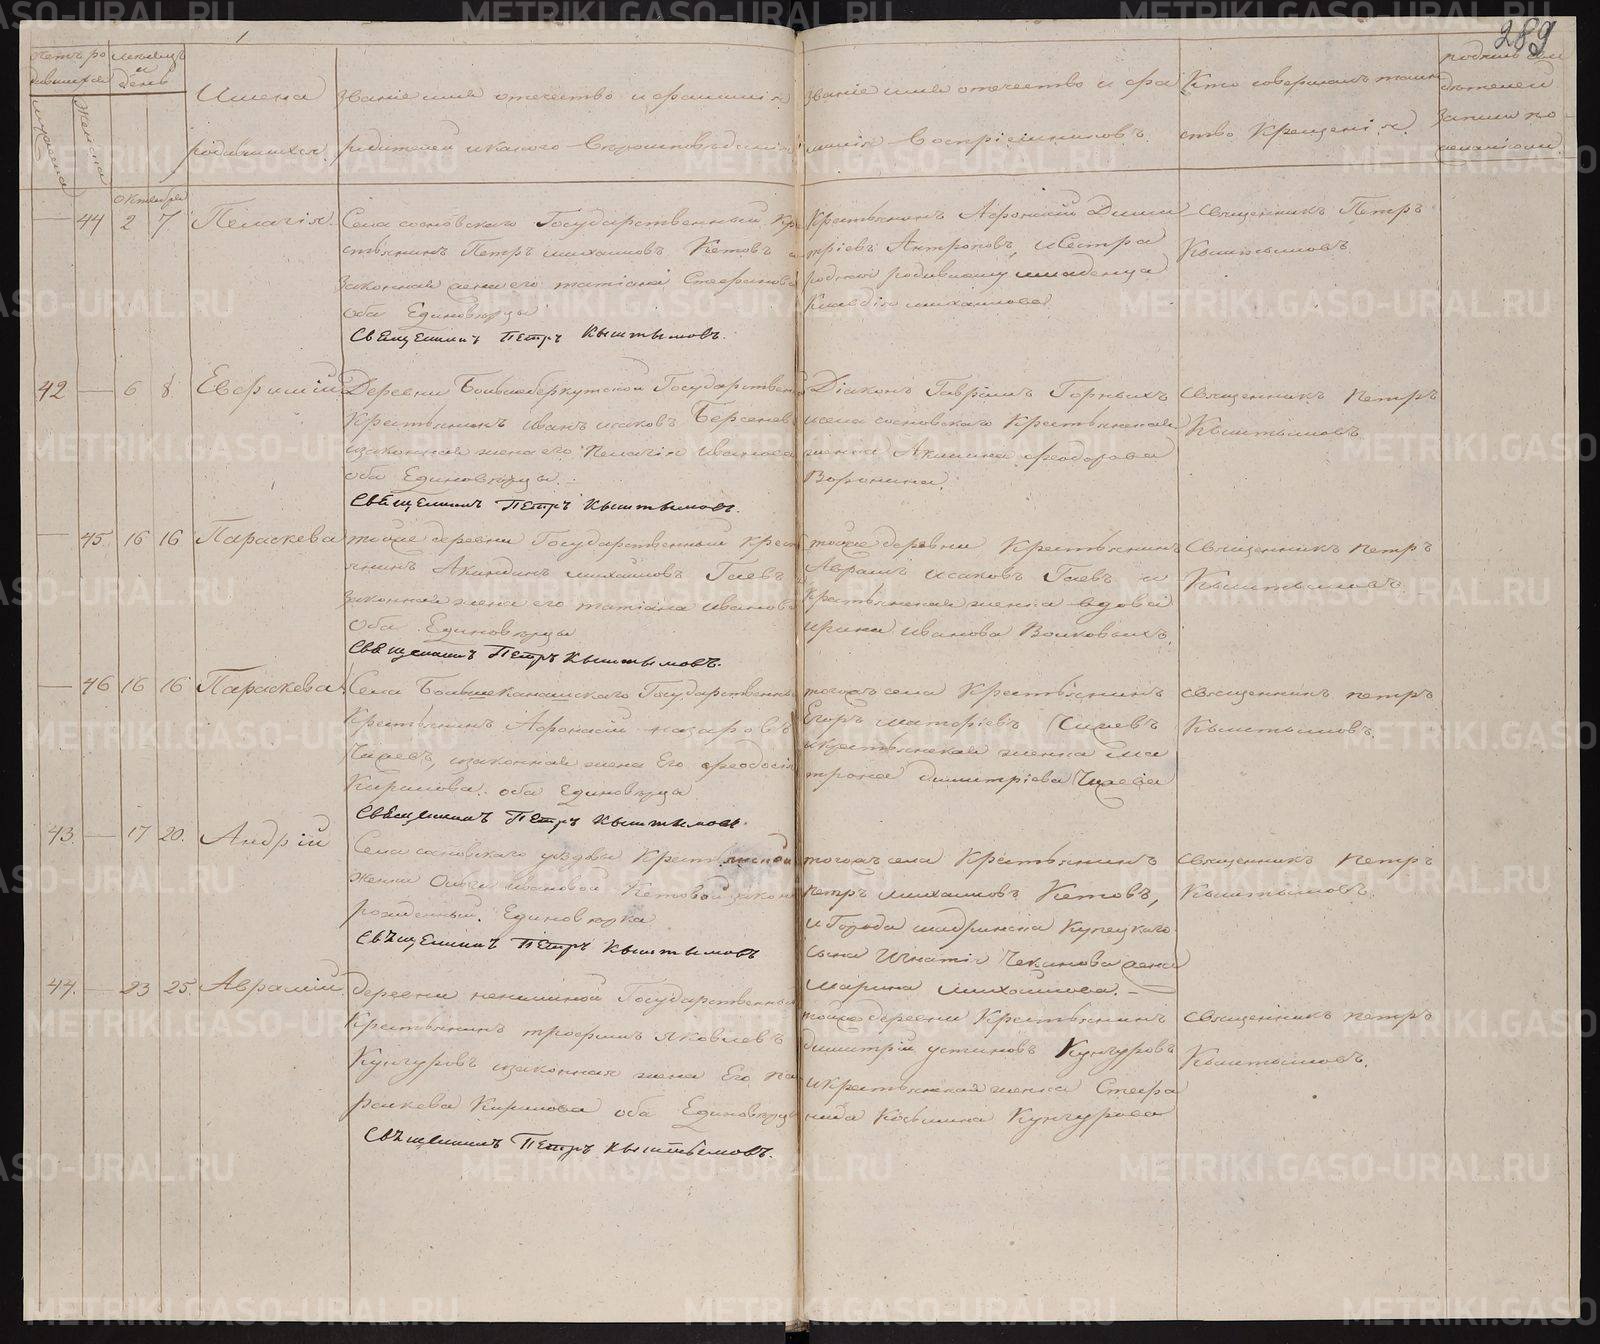 289
Счетъ ро
дившихся
мѣсяцъ
и
день
мужеска
женска
Имена
родившихся.
Званіе имя отечество и фамилія
родителей и какого Вѣроисповѣданія
Званіе имя отечество и фа
милія Воспріемниковъ.
Кто совершалъ таин
ство Крещенія.
дѣтелей
записи по
желанію
Октября
44 2 7 Пелагія.
Села сосновскаго Государственный Кре
стьянинъ Петръ михаиловъ Кетовъ и
законная жена его татіана Стефанова
оба Единовѣрцы
Священникъ Петръ Кыштымовъ.
Крестьянинъ Афонасій Дими
тріевъ Антроповъ, и Сестра
родная родившагося младенца
Клавдія михаилова
священникъ Петръ
Кыштымовъ.
42 6 8 Евфимій
Деревни Большебѣркутской Государствен
Крестьянинъ Иванъ исаковъ Берсенев
и законная жена его Пелагія Иванова
оба Единовѣрцы.
Священникъ Петръ Кыштымовъ.
Діаконъ Гавріилъ Горныхъ
и села сосновскаго Крестьянская
женка Акилина феодорова
Воронина.
священникъ Петръ
Кыштымовъ.
45. 16 16 Параскева
тойже деревни Государственный Крест
янинъ Акиндинъ михаиловъ Гаевъ
законная жена его татіана иванова
Оба Единовѣрцы
Священникъ Петръ Кыштымовъ.
тойже деревни Крестьянинъ
Аврамъ исаковъ Гаевъ и
Крестьянская женка вдова
ирина иванова Волковыхъ.
Священникъ Петръ
Кыштымовъ.
46 16 16 Параскева
Села Большеканашскаго Государственны
Крестьянинъ Афонасій назаровъ
Чащевъ, изаконная жена Его феодосія
Кирилова. оба Единовѣрца
Священникъ Петръ Кыштымовъ.
тогожъ села Крестьянинъ
Егоръ
и крестьянская женка Ма
трона димитріева Чащева
священникъ петръ
Кыштымовъ.
43. 17 20. Андрій
Села сосновскаго у вдовы Крестьянской
женки Ольги ивановой Кетовой закон
рожденный. Единовѣрка
Священникъ Петръ Кыштымовъ
тогожъ села Крестьянинъ
петръ михаиловъ Кетовъ,
и Города шадринска Купецкаго
сына Игнатія Чекинова жена
Марина михаилова.
Священникъ петръ
Кыштымовъ.
44. 23 25. Аврамій
деревни Государственный
Крестьянинъ трофимъ яковлевъ
Кунгуровъ изаконная жена Его па
раскева Кирилова оба Единовѣрцы
Священникъ Петръ Кыштымовъ.
тойже деревни Крестьянинъ
димитрій устиновъ Кунгуровъ
и крестьянская женка Стефа
нида Косьмина Кунгурова
Священникъ петръ
Кыштымовъ.
METRIKI.GASO-URAL.RU